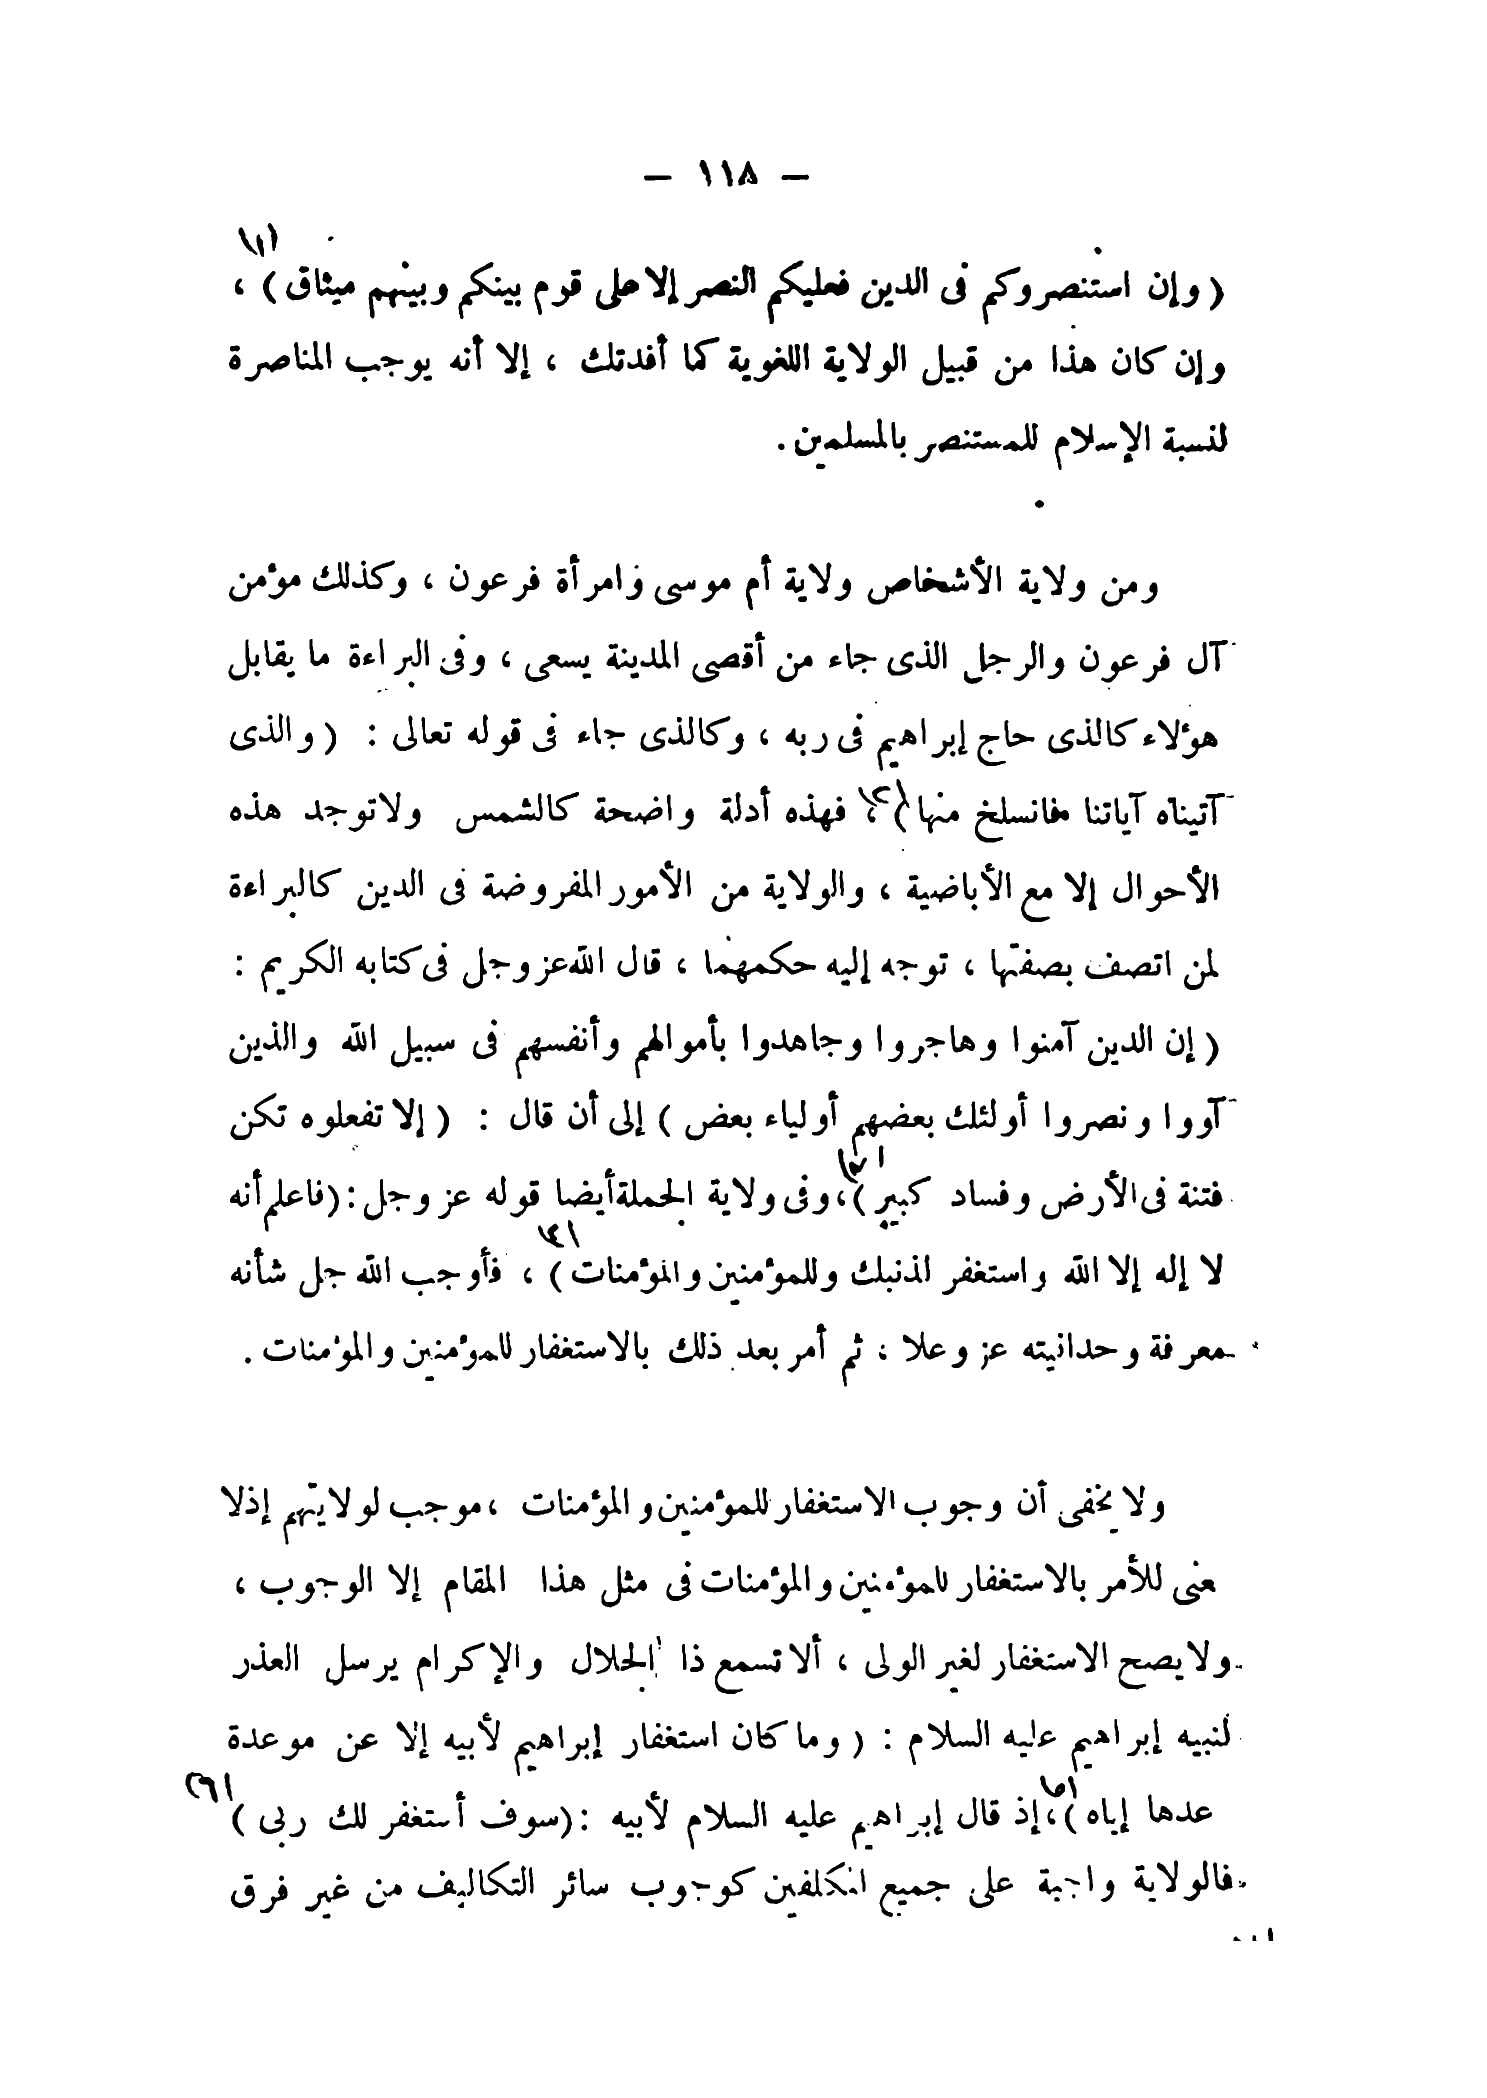 — ١١٨ —
( وإن استنصروكم فى الدين فعليكم النصر إلا على قوم بينكم وبينهم ميثاق ) (١) ،
وإن كان هذا من قبيل الولاية اللغوية كما أفدتك ، إلا أنه يوجب المناصرة
لنسبة الإسلام للمستنصر بالمسلمين .
ومن ولاية الأشخاص ولاية أم موسى وامرأة فرعون ، وكذلك مؤمن
آل فرعون والرجل الذى جاء من أقصى المدينة يسعى ، وفى البراءة ما يقابل
هؤلاء كالذى حاج إبراهيم فى ربه ، وكالذى جاء فى قوله تعالى : ( والذى
آتيناه آياتنا فانسلخ منها ) (٢) ، فهذه أدلة واضحة كالشمس ولا توجد هذه
الأحوال إلا مع الأباضية ، والولاية من الأمور المفروضة فى الدين كالبراءة
لمن اتصف بصفتها ، توجه إليه حكمهما ، قال الله عز وجل فى كتابه الكريم :
( إن الدين آمنوا وهاجروا وجاهدوا بأموالهم وأنفسهم فى سبيل الله والذين
آووا ونصروا أولئك بعضهم أولياء بعض ) إلى أن قال : ( إلا تفعلوه تكن
فتنة فى الأرض وفساد كبير ) (٣) ، وفى ولاية الجملة أيضا قوله عز وجل : ( فاعلم أنه
لا إله إلا الله واستغفر لذنبك وللمؤمنين والمؤمنات ) (٤) ، فأوجب الله جل شأنه
معرفة وحدانيته عز وعلا ، ثم أمر بعد ذلك بالاستغفار للمؤمنين والمؤمنات .
ولا يخفى أن وجوب الاستغفار للمؤمنين والمؤمنات ، موجب لولايتهم إذ لا
عنى للأمر بالاستغفار للمؤمنين والمؤمنات فى مثل هذا المقام إلا الوجوب ،
ولا يصح الاستغفار لغير الولى ، ألا تسمع ذا الجلال والإكرام يرسل العذر
لنبيه إبراهيم عليه السلام : ( وما كان استغفار إبراهيم لأبيه إلا عن موعدة
عدها إياه ) (٥) ، إذ قال إبراهيم عليه السلام لأبيه : ( سوف أستغفر لك ربى ) (٦)
فالولاية واجبة على جميع المكلفين كوجوب سائر التكاليف من غير فرق